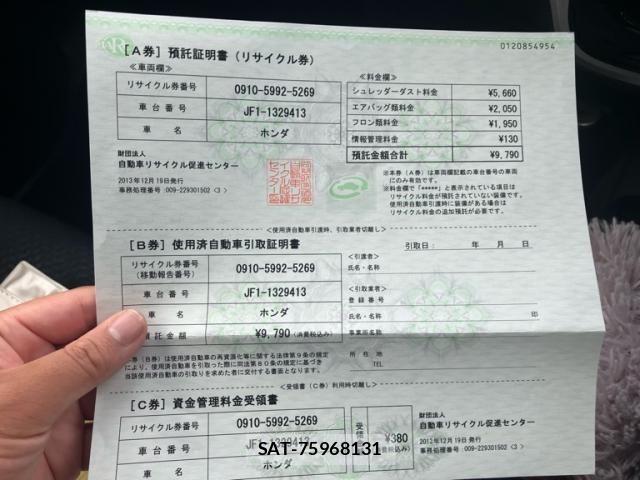 0120854954
[A券] 預託証明書（リサイクル券）
≪車両欄≫
リサイクル券番号 0910-5992-5269
車台番号 JF1-1329413
車名 ホンダ
≪料金欄≫
シュレッダーダスト料金 ¥5,660
エアバッグ類料金 ¥2,050
フロン類料金 ¥1,950
情報管理料金 ¥130
預託金額合計 ¥9,790
財団法人
自動車リサイクル促進センター
2013年12月19日発行
事務処理番号:009-229301502 <3>
※本券（A券）は車両欄記載の車台番号の車両
にのみ有効です。
※料金欄で「*****」と表示されている項目は
リサイクル料金が預託されていない装備です。
使用済自動車引渡時に装備がある場合は
リサイクル料金の追加預託が必要です。
<使用済自動車引渡時、引取業者切離し>
[B券] 使用済自動車引取証明書
引取日： 年 月 日
リサイクル券番号
(移動報告番号) 0910-5992-5269
車台番号 JF1-1329413
車名 ホンダ
預託金額 ¥9,790 (消費税込み)
<引渡者>
氏名・名称
<引取業者>
登録番号
氏名・名称 印
事業所名称
所在地
TEL
券（B券）は使用済自動車の再資源化等に関する法律第９条の規定
により、使用済自動車を引取った際に同法第８０条の規定に基づき
当該使用済自動車の引取りを求めた者に交付する書面となります。
<受領書（C券）利用時切離し>
[C券] 資金管理料金受領書
リサイクル券番号 0910-5992-5269
車台番号 JF1-1329413
車名 ホンダ
¥380
費税込み)
財団法人
自動車リサイクル促進センター
2013年12月19日発行
事務処理番号:009-229301502 <3>
SAT-75968131